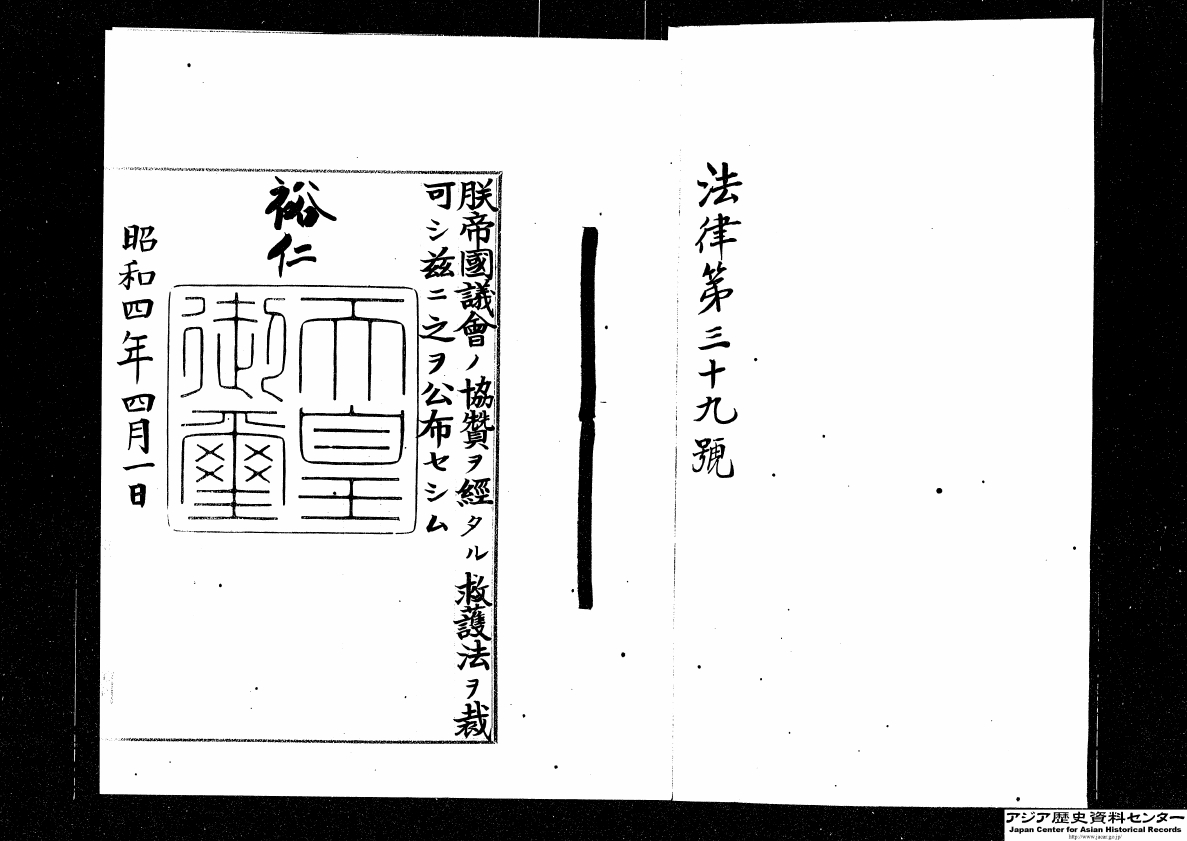 法律第三十九號
朕帝國議會ノ協贊ヲ經タル救護法ヲ裁
可シ茲ニ之ヲ公布セシム
裕仁
天皇
御璽
昭和四年四月一日
アジア歴史資料センター
Japan Center for Asian Historical Records
http://www.jacar.go.jp/